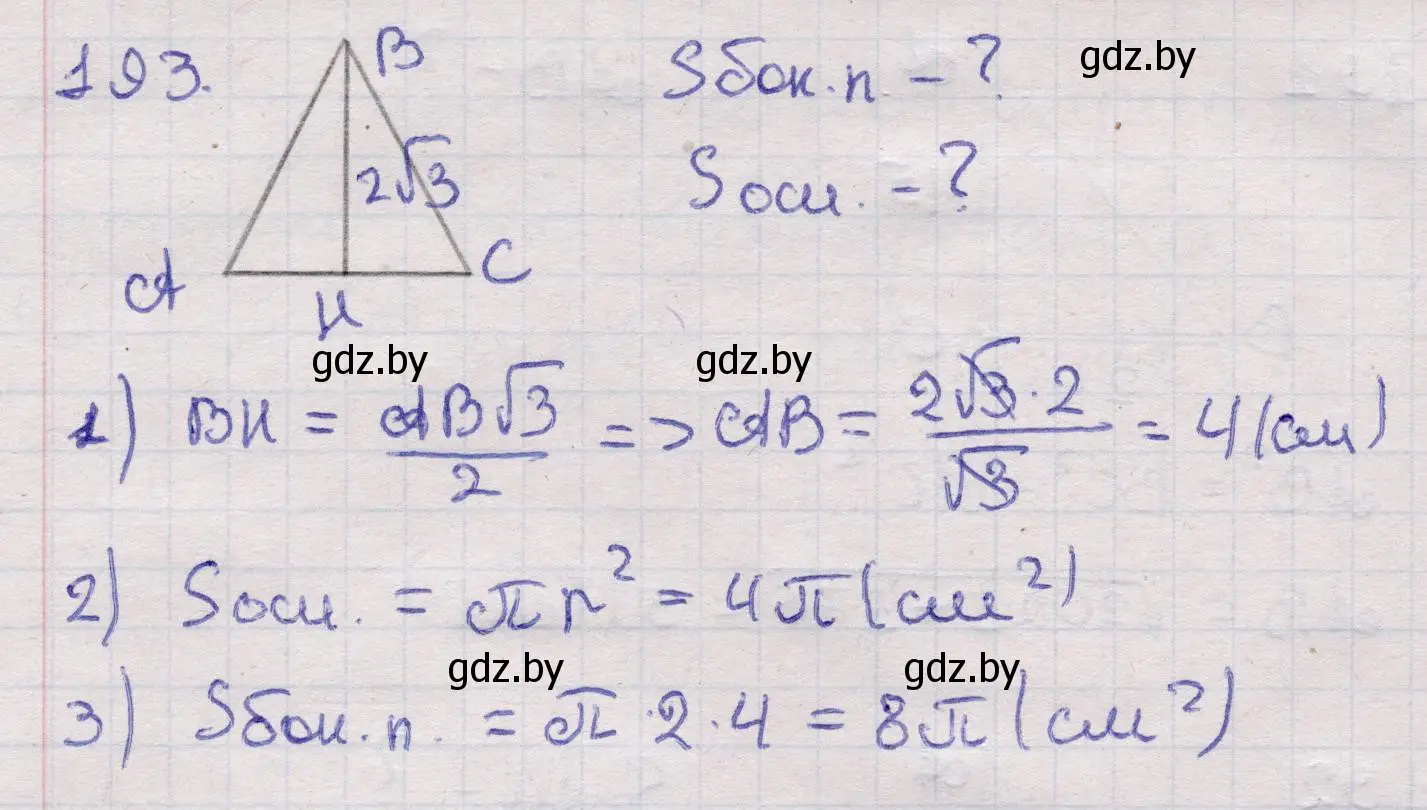 193. B Sбок.п. - ? gdz.by
2√3 Sосн. - ?
A H C
gdz.by gdz.by
1) BH = AB√3/2 => AB = 2√3·2/√3 = 4(см)
2) Sосн. = πr² = 4π(см²)
gdz.by gdz.by
3) Sбок.п. = π·2·4 = 8π(см²)